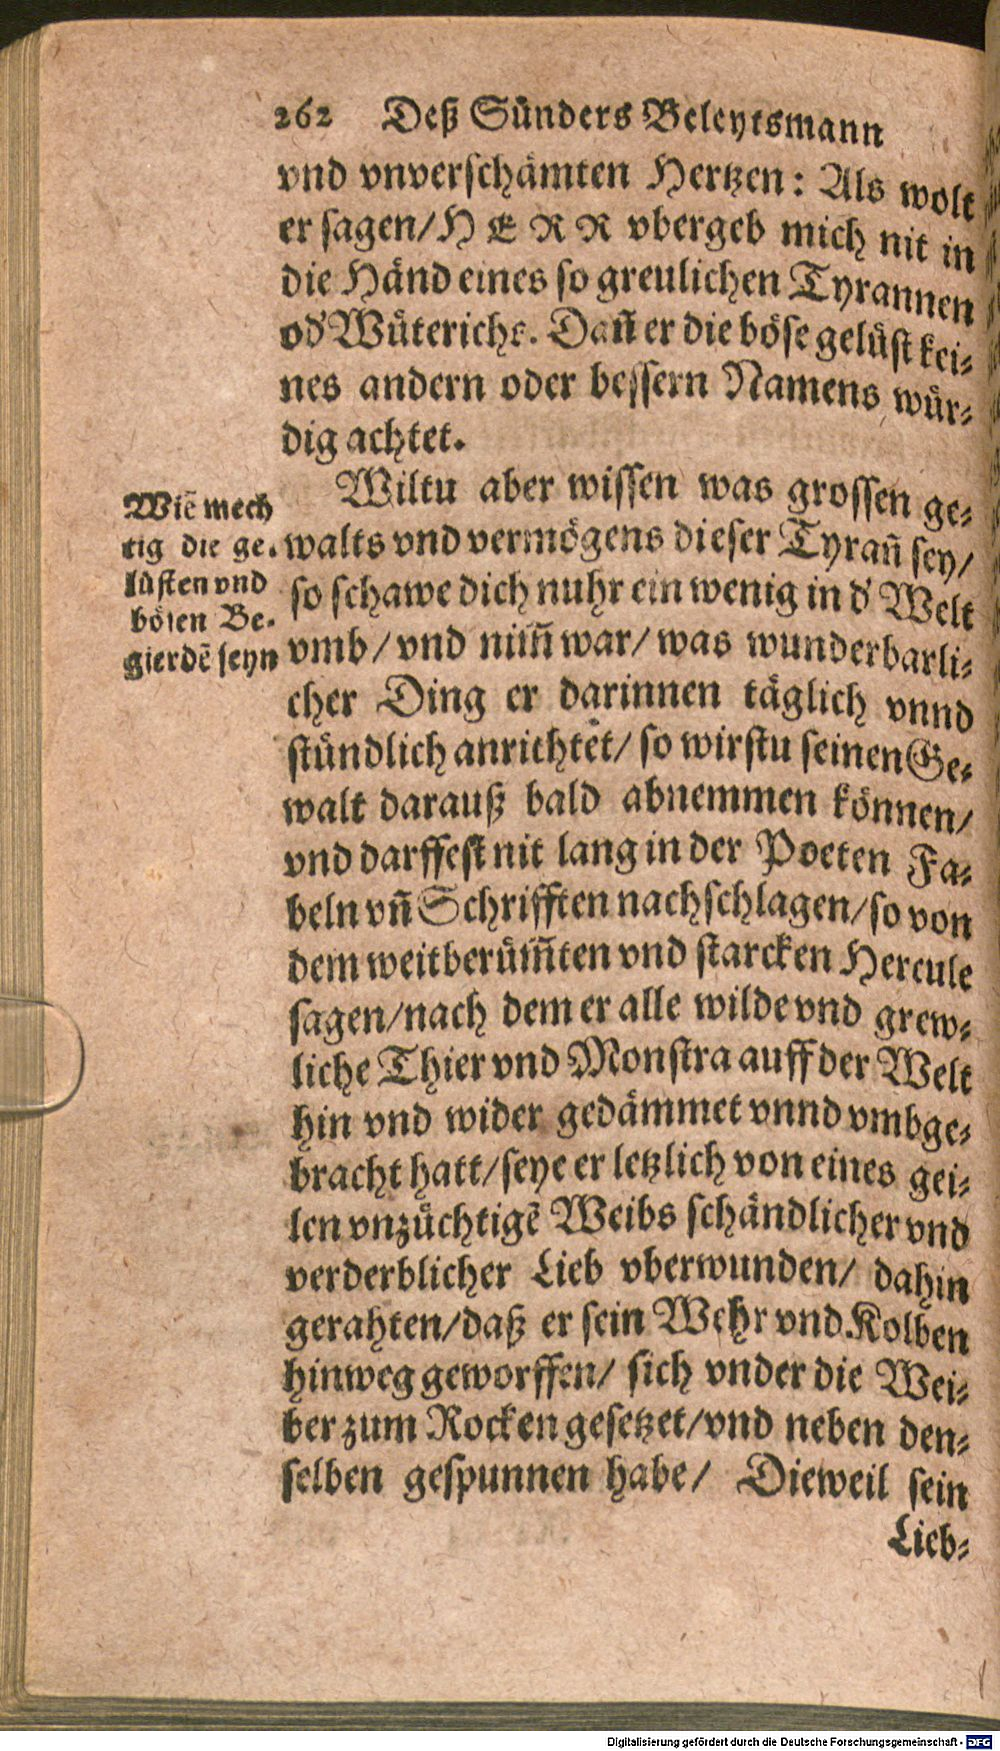 262 Deß Sünders Beleytsmann
vnd vnverschämten Hertzen: Als wolt
er sagen/ HERR vbergeb mich nit in
die Händ eines so greulichen Tyrannen
od' Wüterichs. Dañ er die böse gelüst kei⸗
nes andern oder bessern Namens wür⸗
dig achtet.
Wiltu aber wissen was grossen ge⸗
walts vnd vermögens dieser Tyrañ sey/
so schawe dich nuhr ein wenig in d' Welt
vmb/ vnd nim̃ war/ was wunderbarli⸗
cher Ding er darinnen täglich vnnd
stündlich anrichtet/ so wirstu seinen Ge⸗
walt darauß bald abnemmen können/
vnd darffest nit lang in der Poeten Fa⸗
beln vñ Schrifften nachschlagen/ so von
dem weitberüm̃ten vnd starcken Hercule
sagen/ nach dem er alle wilde vnd grew⸗
liche Thier vnd Monstra auff der Welt
hin vnd wider gedämmet vnnd vmbge⸗
bracht hatt/ seye er letzlich von eines gei⸗
len vnzüchtigẽ Weibs schändlicher vnd
verderblicher Lieb vberwunden/ dahin
gerahten/ daß er sein Wehr vnd Kolben
hinweg geworffen/ sich vnder die Wei⸗
ber zum Rocken gesetzet/ vnd neben den⸗
selben gespunnen habe/ Dieweil sein
Lieb⸗
Wie mech
tig die ge⸗
lüsten vnd
bösen Be⸗
gierdẽ seyn
Digitalisierung gefördert durch die Deutsche Forschungsgemeinschaft - DFG